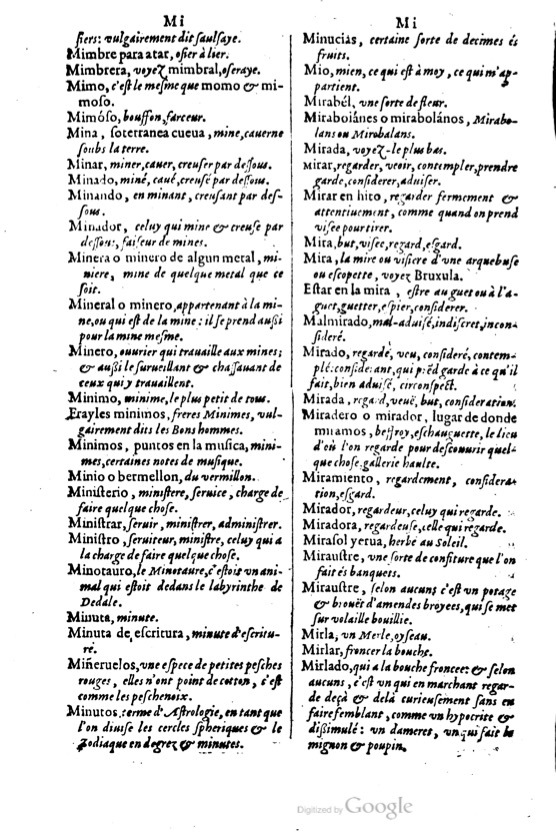 Mi
siers: vulgairement dit saulsaye.
Mimbre para atar, osier à lier.
Mimbrera, voyez mimbral, oseraye.
Mimo, c'est le mesme que momo & mi-
moso.
Mimóso, bouffon, farceur.
Mina, soterranea cueua, mine, cauerne
soubs la terre.
Minar, miner, cauer, creuser par dessous.
Minado, miné, caué, creusé par dessous.
Minando, en minant, creusant par des-
sous.
Minador, celuy qui mine & creuse par
dessous, faiseur de mines.
Minera o minero de algun metal, mi-
niere, mine de quelque metal que ce
soit.
Mineral o minero, appartenant à la mi-
ne, ou qui est de la mine: il se prend aussi
pour la mine mesme.
Minero, ouurier qui trauaille aux mines;
& aussi le surueillant & chassauant de
ceux qui y trauaillent.
Minimo, minime, le plus petit de tous.
Frayles minimos, freres Minimes, vul-
gairement dits les Bons hommes.
Minimos, puntos en la musica, mini-
mes, certaines notes de musique.
Minio o bermellon, du vermillon.
Ministerio, ministere, seruice, charge de
faire quelque chose.
Ministrar, seruir, ministrer, administrer.
Ministro, seruiteur, ministre, celuy qui a
la charge de faire quelque chose.
Minotauro, le Minotaure, c'estoit vn ani-
mal qui estoit dedans le labyrinthe de
Dedale.
Minuta, minute.
Minuta de escritura, minute d'escritu-
re.
Miñeruelos, vne espece de petites pesches
rouges, elles n'ont point de cotton, c'est
comme les peschenoix.
Minutos, terme d'Astrologie, en tant que
l'on diuise les cercles spheriques & le
Zodiaque en degrez & minutes.
Mi
Minucias, certaine sorte de decimes és
fruits.
Mio, mien, ce qui est à moy, ce qui m'ap-
partient.
Mirabél, vne sorte de fleur.
Miraboiánes o mirabolános, Mirabo-
lans ou Mirobalans.
Mirada, voyez-le plus bas.
Mirar, regarder, veoir, contempler, prendre
garde, considerer, aduiser.
Mirar en hito, regarder fermement &
attentiuement, comme quand on prend
visée pour tirer.
Mira, but, visée, regard, esgard.
Mira, la mire ou visiere d'une arquebuse
ou escopette, voyez Bruxula.
Estar en la mira, estre au guet ou à l'a-
guet, guetter, espier, considerer.
Malmirado, mal-aduisé, indiscret, incon-
sideré.
Mirado, regardé, veu, consideré, contem-
plé: considerant, qui prẽd garde à ce qu'il
fait, bien aduisé, circonspect.
Mirada, regard, veuë, but, consideration.
Miradero o mirador, lugar de donde
miramos, beffroy, eschauguette, le lieu
d'où l'on regarde pour descouurir quel-
que chose, gallerie haulte.
Miramiento, regardement, considera-
tion, esgard.
Mirador, regardeur, celuy qui regarde.
Miradora, regardeuse, celle qui regarde.
Mirasol yerua, herbe au Soleil.
Miraustre, vne sorte de confiture que l'on
fait és banquets.
Miraustre, selon aucuns c'est un potage
& brouët d'amendes broyees, qui se met
sur volaille bouillie.
Mirla, vn Merle, oyseau.
Mirlar, froncer la bouche.
Mirlado, qui a la bouche froncee: & selon
aucuns, c'est vn qui en marchant regar-
de deçà & delà curieusement sans en
faire semblant, comme vn hypocrite &
dissimulé: vn dameret, vn qui fait le
mignon & poupin.
Digitized by Google